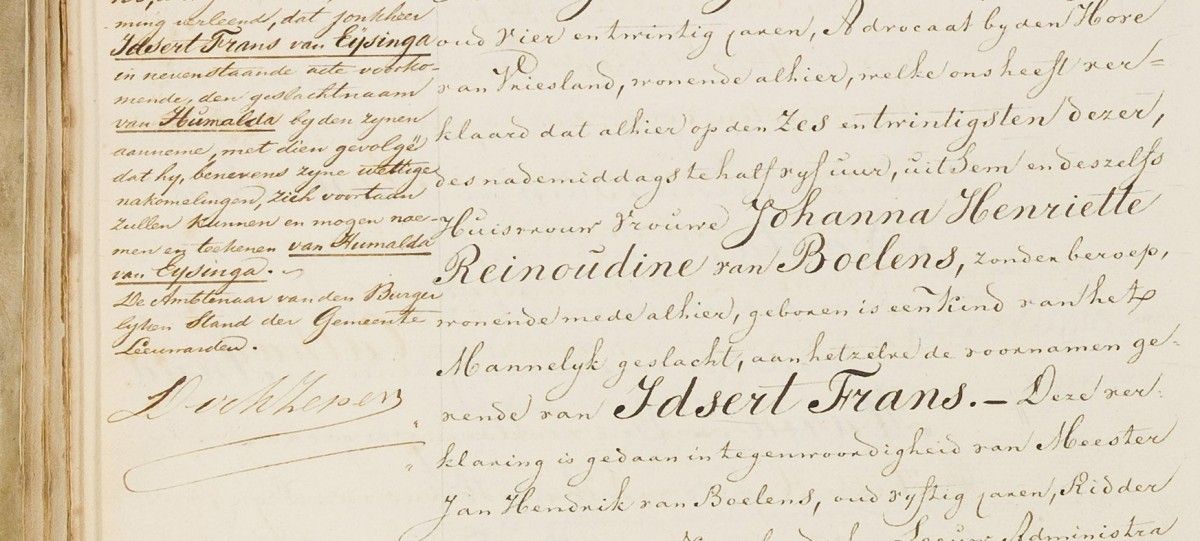 ming verleend, dat jonkheer
Idsert Frans van Eijsinga
in nevenstaande acte voorko-
mende, den geslachtnaam
van Humalda by den zynen
aanneme, met dien gevolge
dat hy, benevens zyne wettige
nakomelingen, zich voortaan
zullen kunnen en mogen noe-
men en teekenen van Humalda
van Eijsinga.
De Ambtenaar van den Burger
lyken Stand der Gemeente
Leeuwarden.
oud vier en twintig jaren, Advocaat by den Hove
van Vriesland, wonende alhier, welke ons heeft ver-
klaard dat alhier op den zes en twintigsten dezer,
des nademiddags te half vyf uur, uit hem en deszelfs
Huisvrouw Vrouwe Johanna Henriette
Reinoudine van Boelens, zonder beroep,
wonende mede alhier, geboren is een kind van het
Mannelyk geslacht, aan hetzelve de voornamen ge-
vende van Idsert Frans. – Deze ver-
klaring is gedaan in tegenwoordigheid van Meester
Jan Hendrik van Boelens, oud vyftig jaren, Ridder
Leeuw, Administra